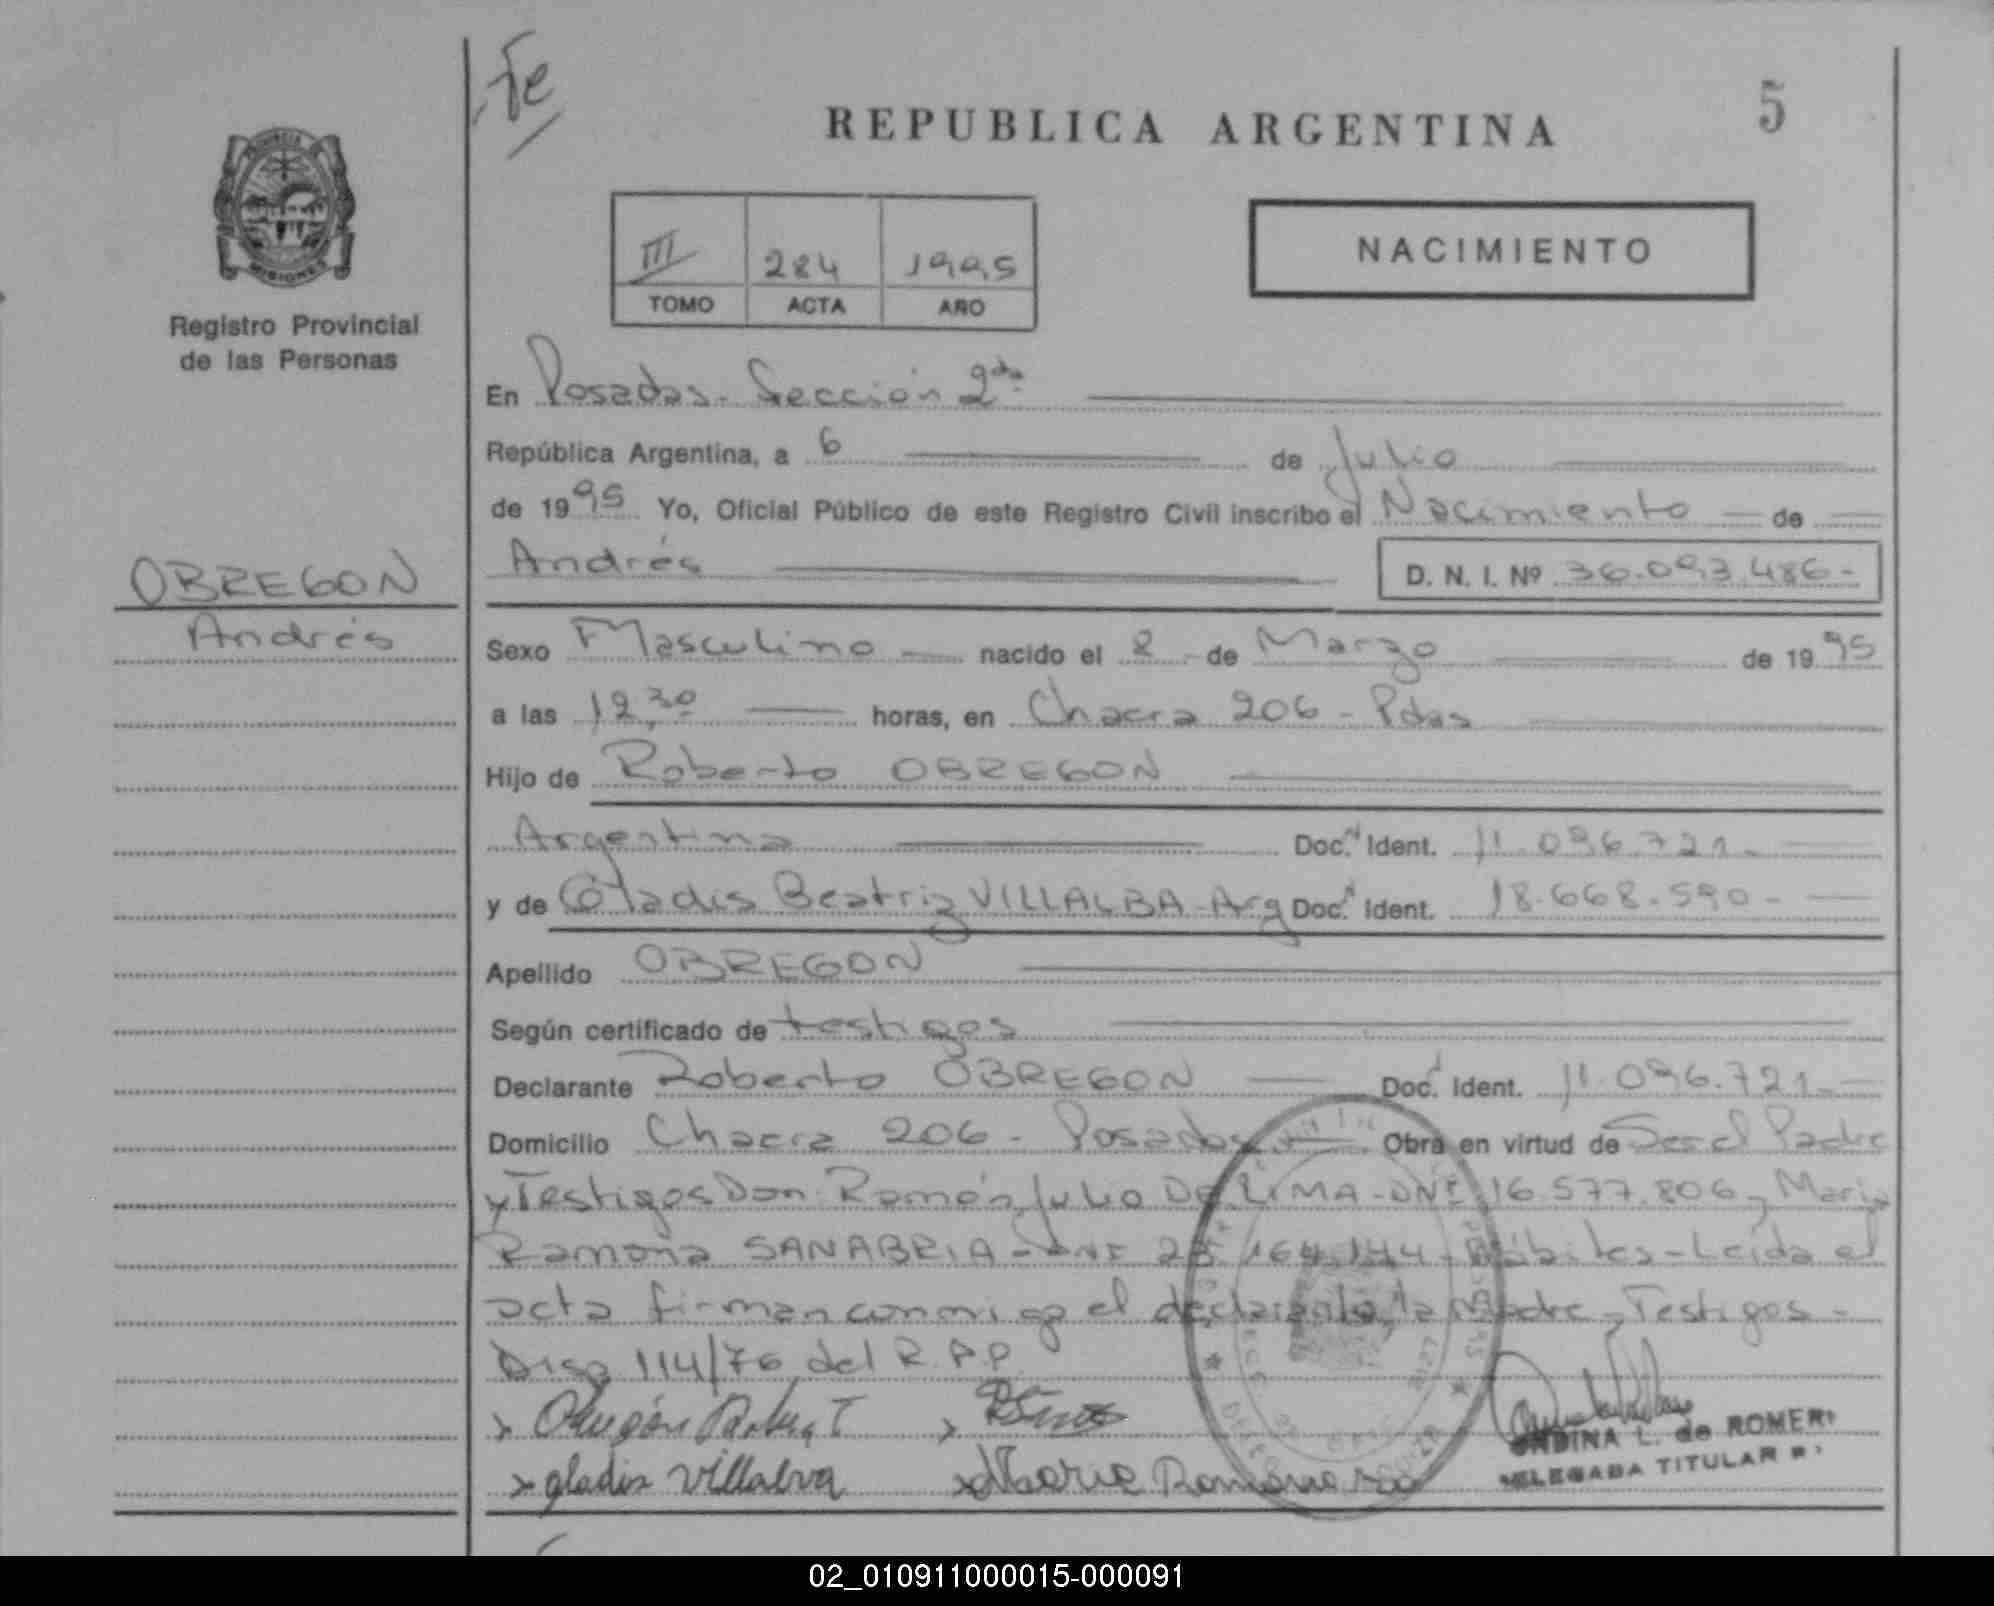 Fe
REPUBLICA ARGENTINA
5
MISIONES
Registro Provincial
de las Personas
III 284 1995
TOMO ACTA AÑO
NACIMIENTO
En Posadas - Sección 2da
República Argentina, a 6 de Julio
de 1995 Yo, Oficial Público de este Registro Civil inscribo el Nacimiento de
Andrés
D. N. I. Nº 36.093.486-
OBREGON
Andrés
Sexo Masculino nacido el 8 de Marzo de 1995
a las 12,30 horas, en Chacra 206 - Pdas
Hijo de Roberto OBREGON
Argentina Doc. Ident. 11.096.721-
y de Gladis Beatriz VILLALBA - Arg Doc. Ident. 18.668.590-
Apellido OBREGON
Según certificado de testigos
Declarante Roberto OBREGON Doc. Ident. 11.096.721-
Domicilio Chacra 206 - Posadas Obra en virtud de Ser el Padre
y Testigos Don Ramón Julio DE LIMA - DNI 16.577.806, Maria
Ramona SANABRIA - DNI 164.144 - Hábiles - Leída el
acta firman conmigo el declarante, la Madre, Testigos -
Disp 114/76 del R.P.P.
gladis villalva
Maria Ramona
ONDINA L. de ROMER
DELEGADA TITULAR
02_010911000015-000091